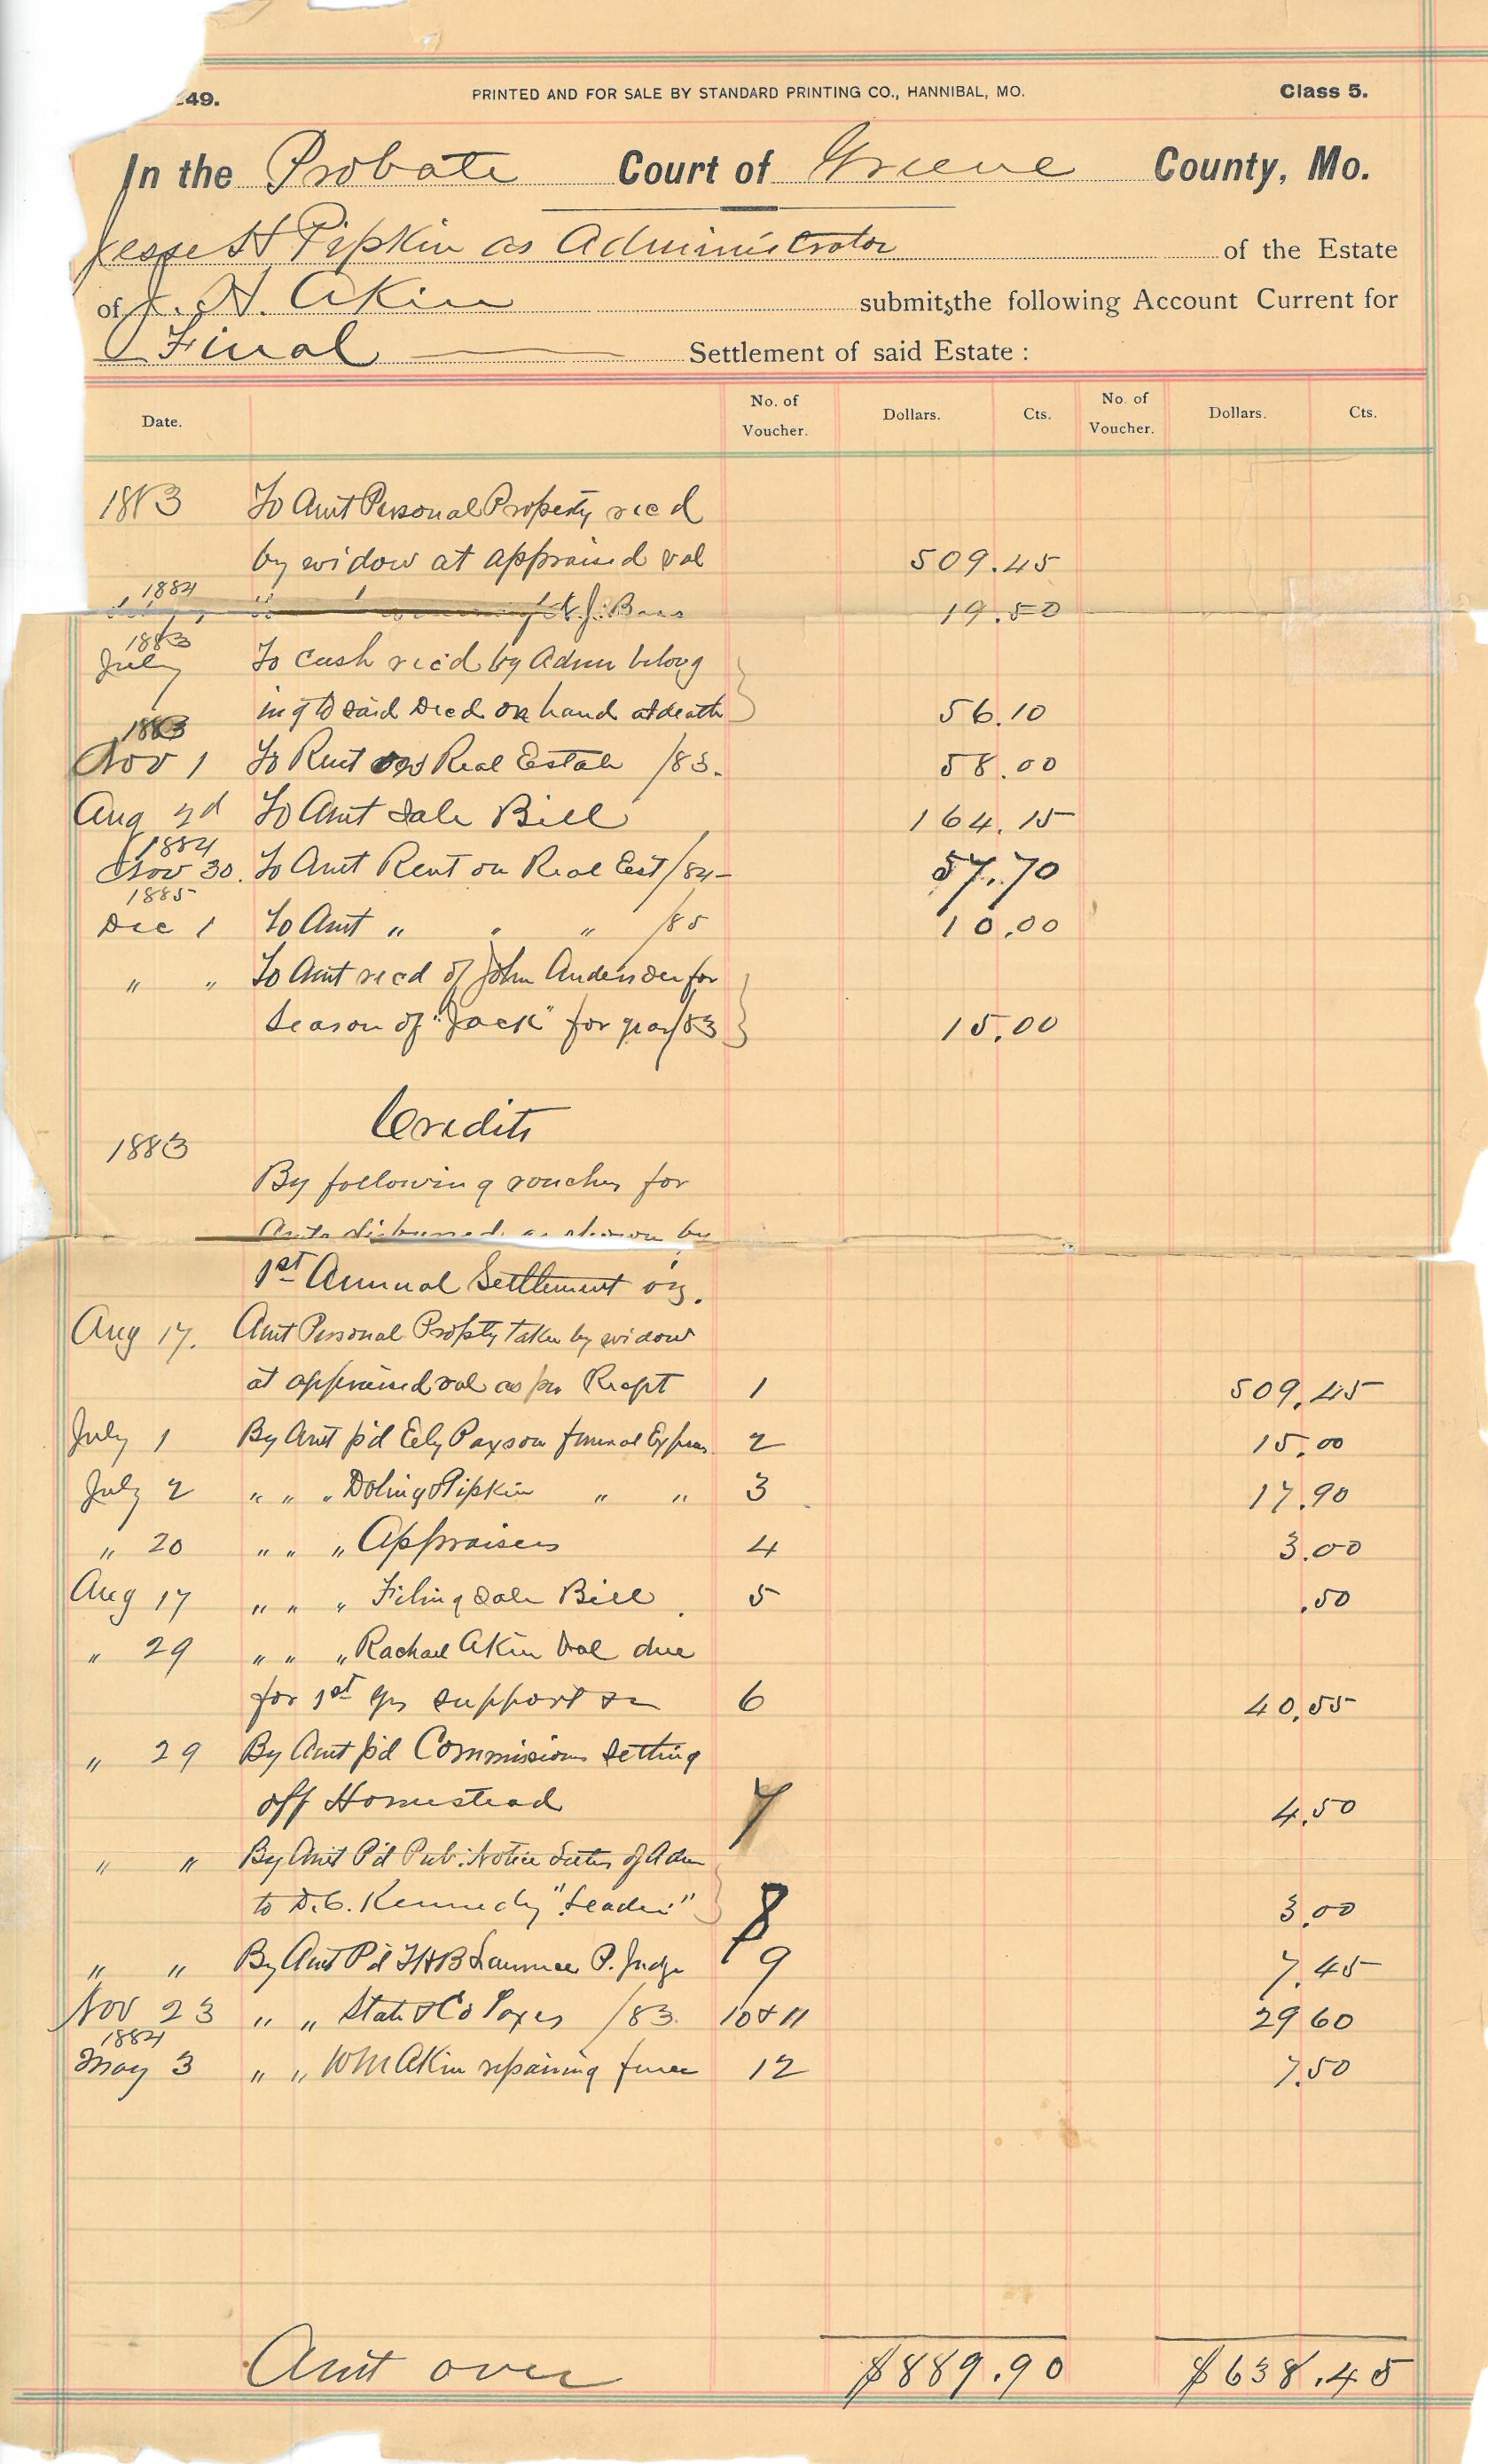 249.
PRINTED AND FOR SALE BY STANDARD PRINTING CO., HANNIBAL, MO.
Class 5.
In the Probate Court of Greene County, Mo.
Jesse H Pipkin as Administrator of the Estate
of J. H. Akin submits the following Account Current for
Final Settlement of said Estate:
Date. No. of Voucher. Dollars. Cts. No. of Voucher. Dollars. Cts.
1883 To Amt Personal Property recd
by widow at appraised val 509.45
1884
" N. J. Bass 19.50
1883
July To Cash rec'd by Admr belong
ing to said Decd on hand at death 56.10
1883
Nov 1 To Rent on Real Estate /83. 58.00
Aug 2d To Amt Sale Bill 164.15
1884
Nov 30. To Amt Rent on Real Est /84– 57.70
1885
Dec 1 To Amt " " " /85 10.00
" " To Amt recd of John Anderson for
Season of "Jack" for year/83 15.00
Credits
1883
By following vouchers for
Amts disbursed as shown by
1st Annual Settlement viz.
Aug 17. Amt Personal Propty taken by widow
at appraised val as per Recpt 1 509.45
July 1 By Amt p'd Ely Paxson funeral Expens 2 15.00
July 2 " " " Doling & Pipkin " " 3 17.90
" 20 " " " Appraisers 4 3.00
Aug 17 " " " Filing Sale Bill. 5 .50
" 29 " " " Rachael Akin bal due
for 1st yrs support 6 40.55
" 29 By Amt p'd Commissions Setting
off Homestead 7 4.50
" " By Amt P'd Pub. Notice Letters of Adm
to D.C. Kennedy "Leader" 8 3.00
" " By Amt P'd T H B Lawrence P. Judge 9 7.45
Nov 23 " " State & Co Taxes /83. 10 & 11 29 60
1884
May 3 " " Wm Akin repairing fence 12 7.50
Amt over $889.90 $638.45